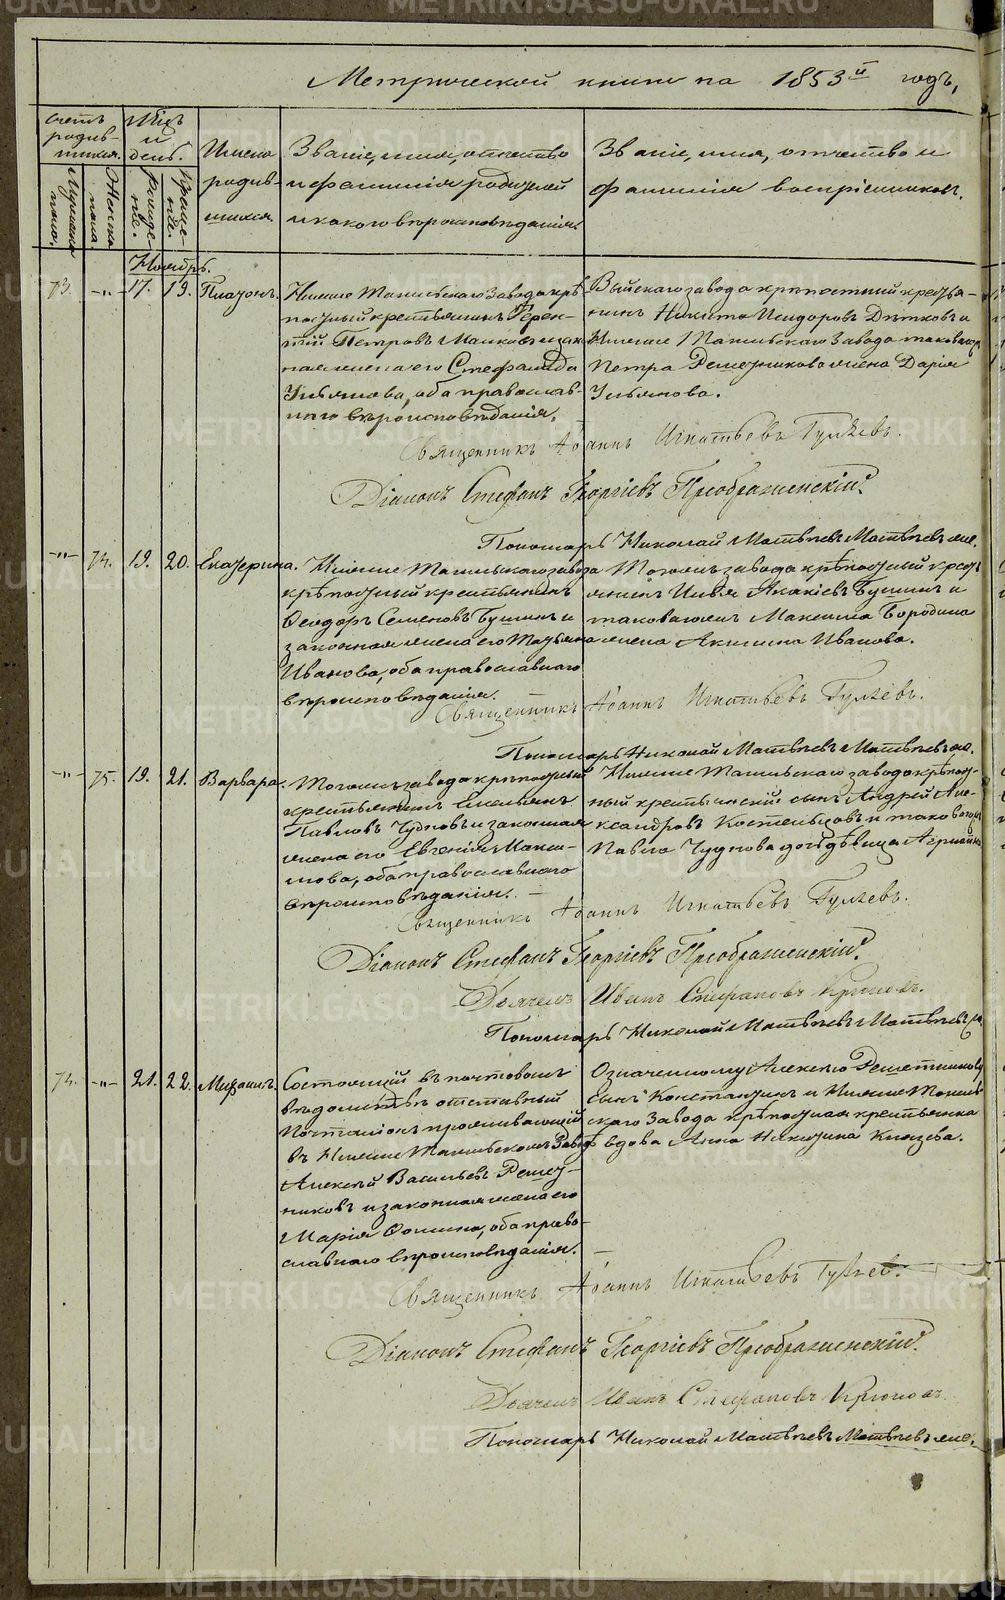 METRIKI.GASO-URAL.RU
Метрической книги на 1853й годъ,
Счетъ родившихся.
Мужеска пола.
Женска пола.
Мѣсяцъ и день.
рожденіе.
крещеніе.
Имена родившихся.
Званіе, имя, отчество
и фамилія родителей
и какого вѣроисповѣданія.
Званіе, имя, отчество и
фамилія воспріемниковъ.
Ноябрь.
73. -"- 17. 19. Платонъ.
Нижне Тагильскаго Завода крѣ-
постный крестьянинъ Терен-
тій Петровъ и закон-
ная жена его Стефанида
Ульянова, оба православ-
наго вѣроисповѣданія.
Выйскаго завода крѣпостный крестья-
нинъ Никита Исидоровъ Дѣтковъ и
Нижне Тагильскаго Завода таковаго же
Петра Решетникова жена Дарія
Ульянова.
Священникъ Іоаннъ Игнатьевъ Гуляевъ.
Діаконъ Стефанъ Георгіевъ Преображенскій.
Пономарь Николай Матвѣевъ Матвѣевъ же.
-"- 74. 19. 20. Екатерина.
Нижне Тагильскаго завода
крѣпостный крестьянинъ
Ѳеодоръ Семеновъ Бушинъ и
законная жена его Татьяна
Иванова, оба православнаго
вѣроисповѣданія.
Тогожъ завода крѣпостный кресть
янинъ Илья Акакіевъ Бушинъ и
таковагожъ Максима Бородина
жена Акилина Иванова.
Священникъ Іоаннъ Игнатьевъ Гуляевъ.
Пономарь Николай Матвѣевъ Матвѣевъ же.
-"- 75. 19. 21. Варвара.
Тогожъ завода крѣпостный
крестьянинъ
Павловъ Чудновъ и законная
жена его Евгенія Макси-
мова, оба православнаго
вѣроисповѣданія.
Нижне Тагильскаго завода крѣпост-
ный крестьянскій сынъ Андрей Але-
ксандровъ Костенцовъ и таковагожъ
Павла Чуднова дочь дѣвица
Священникъ Іоаннъ Игнатьевъ Гуляевъ.
Діаконъ Стефанъ Георгіевъ Преображенскій.
Дьячекъ Иванъ Стефановъ Крюковъ.
Пономарь Николай Матвѣевъ Матвѣевъ же.
74. -"- 21. 22. Михаилъ.
Состоящій въ почтовомъ
вѣдомствѣ отставный
Почталіонъ проживающій
въ Нижне Тагильскомъ Заводѣ
Алексѣй Васильевъ Решет-
никовъ и законная жена его
Марія Фомина, оба право-
славнаго вѣроисповѣданія.
Означенному Алексѣю Решетникову
сынъ Константинъ и Нижне Тагиль
скаго Завода крѣпостная крестьянка
вдова Анна Никитина Князева.
Священникъ Іоаннъ Игнатьевъ Гуляевъ.
Діаконъ Стефанъ Георгіевъ Преображенскій.
Дьячекъ Иванъ Стефановъ Крюковъ
Пономарь Николай Матвѣевъ Матвѣевъ же.